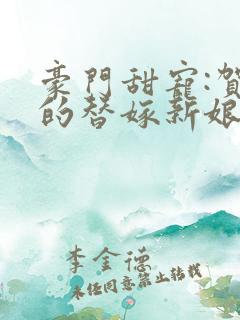 豪門甜寵:賀
的替嫁新娘
李金德
未经同意禁止转载